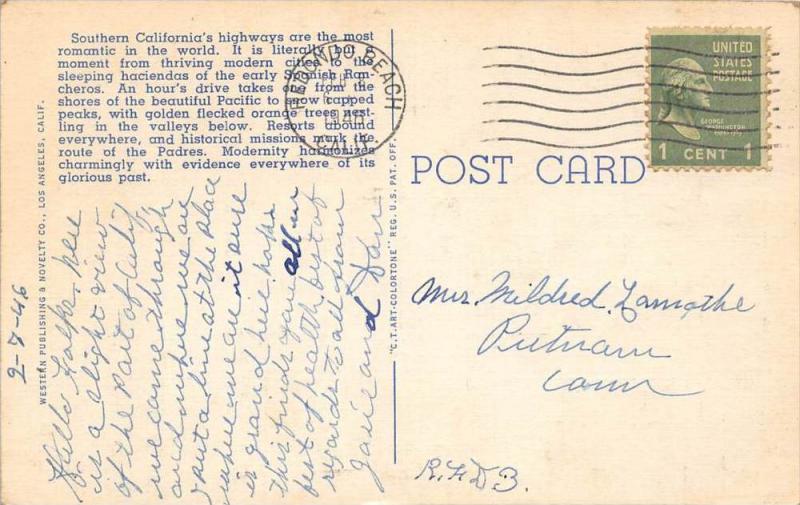 Southern California's highways are the most
romantic in the world. It is literally but a
moment from thriving modern cities to the
sleeping haciendas of the early Spanish Ran-
cheros. An hour's drive takes one from the
shores of the beautiful Pacific to snow capped
peaks, with golden flecked orange trees nest-
ling in the valleys below. Resorts abound
everywhere, and historical missions mark the
route of the Padres. Modernity harmonizes
charmingly with evidence everywhere of its
glorious past.
WESTERN PUBLISHING & NOVELTY CO., LOS ANGELES, CALIF.
2-7-46
Hello Folks, here
is a slight view
of the Part of Calif
we came through
and where we are
want a line at the place
where we are it sure
is grand here hope
this finds you all in
best of health best of
regards to all from
and Dan
"C.T. ART-COLORTONE" REG. U.S. PAT. OFF.
REDONDO BEACH
FEB 8
1946
CALIF.
UNITED
STATES
POSTAGE
GEORGE
WASHINGTON
1 CENT 1
POST CARD
Mrs. Mildred Lamothe
Putnam
Conn
R.F.D 3.